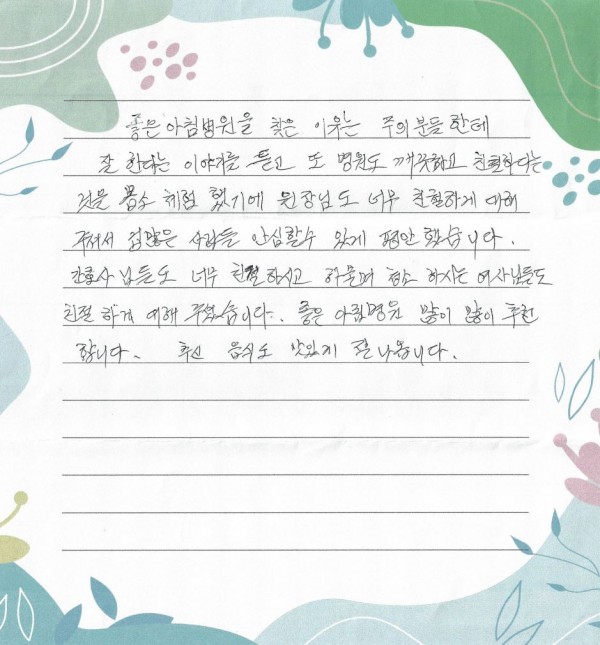 좋은아침병원을 찾은 이유는 주의 분들 한테
잘 한다는 이야기를 듣고 또 병원도 깨끗하고 친절하다는
것을 몸소 체험 했기에 원장님도 너무 친절하게 대해
주셔서 겁많은 사람들 안심할수 있게 평안 했습니다.
간호사 님들도 너무 친절 하시고 하물며 청소 하시는 여사님들도
친절 하게 대해 주셨습니다. 좋은 아침병원 많이 많이 추천
합니다. 음식도 맛있게 잘 나옵니다.